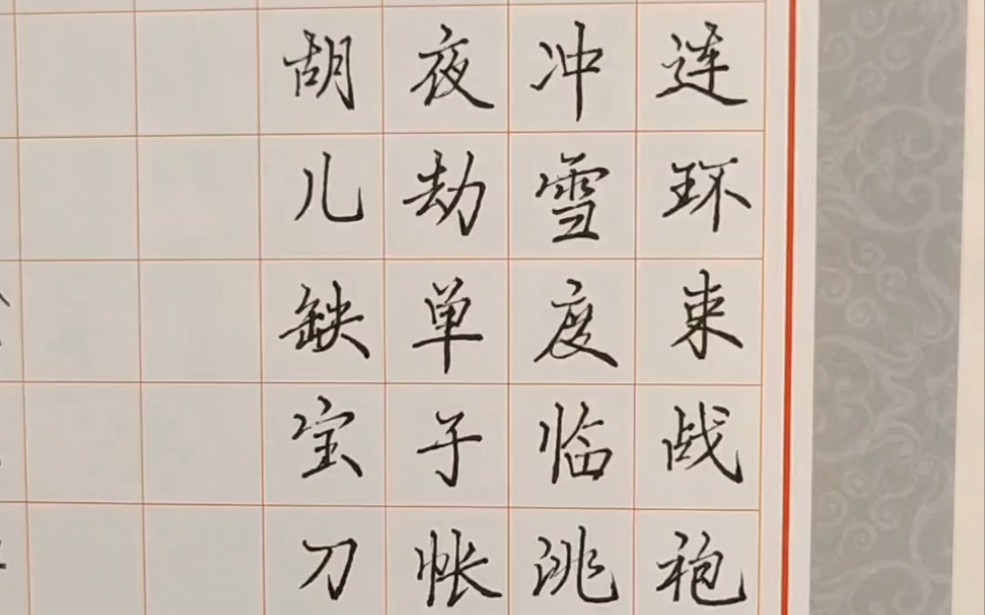 连环束战袍
冲雪度临洮
夜劫单于帐
胡儿缺宝刀